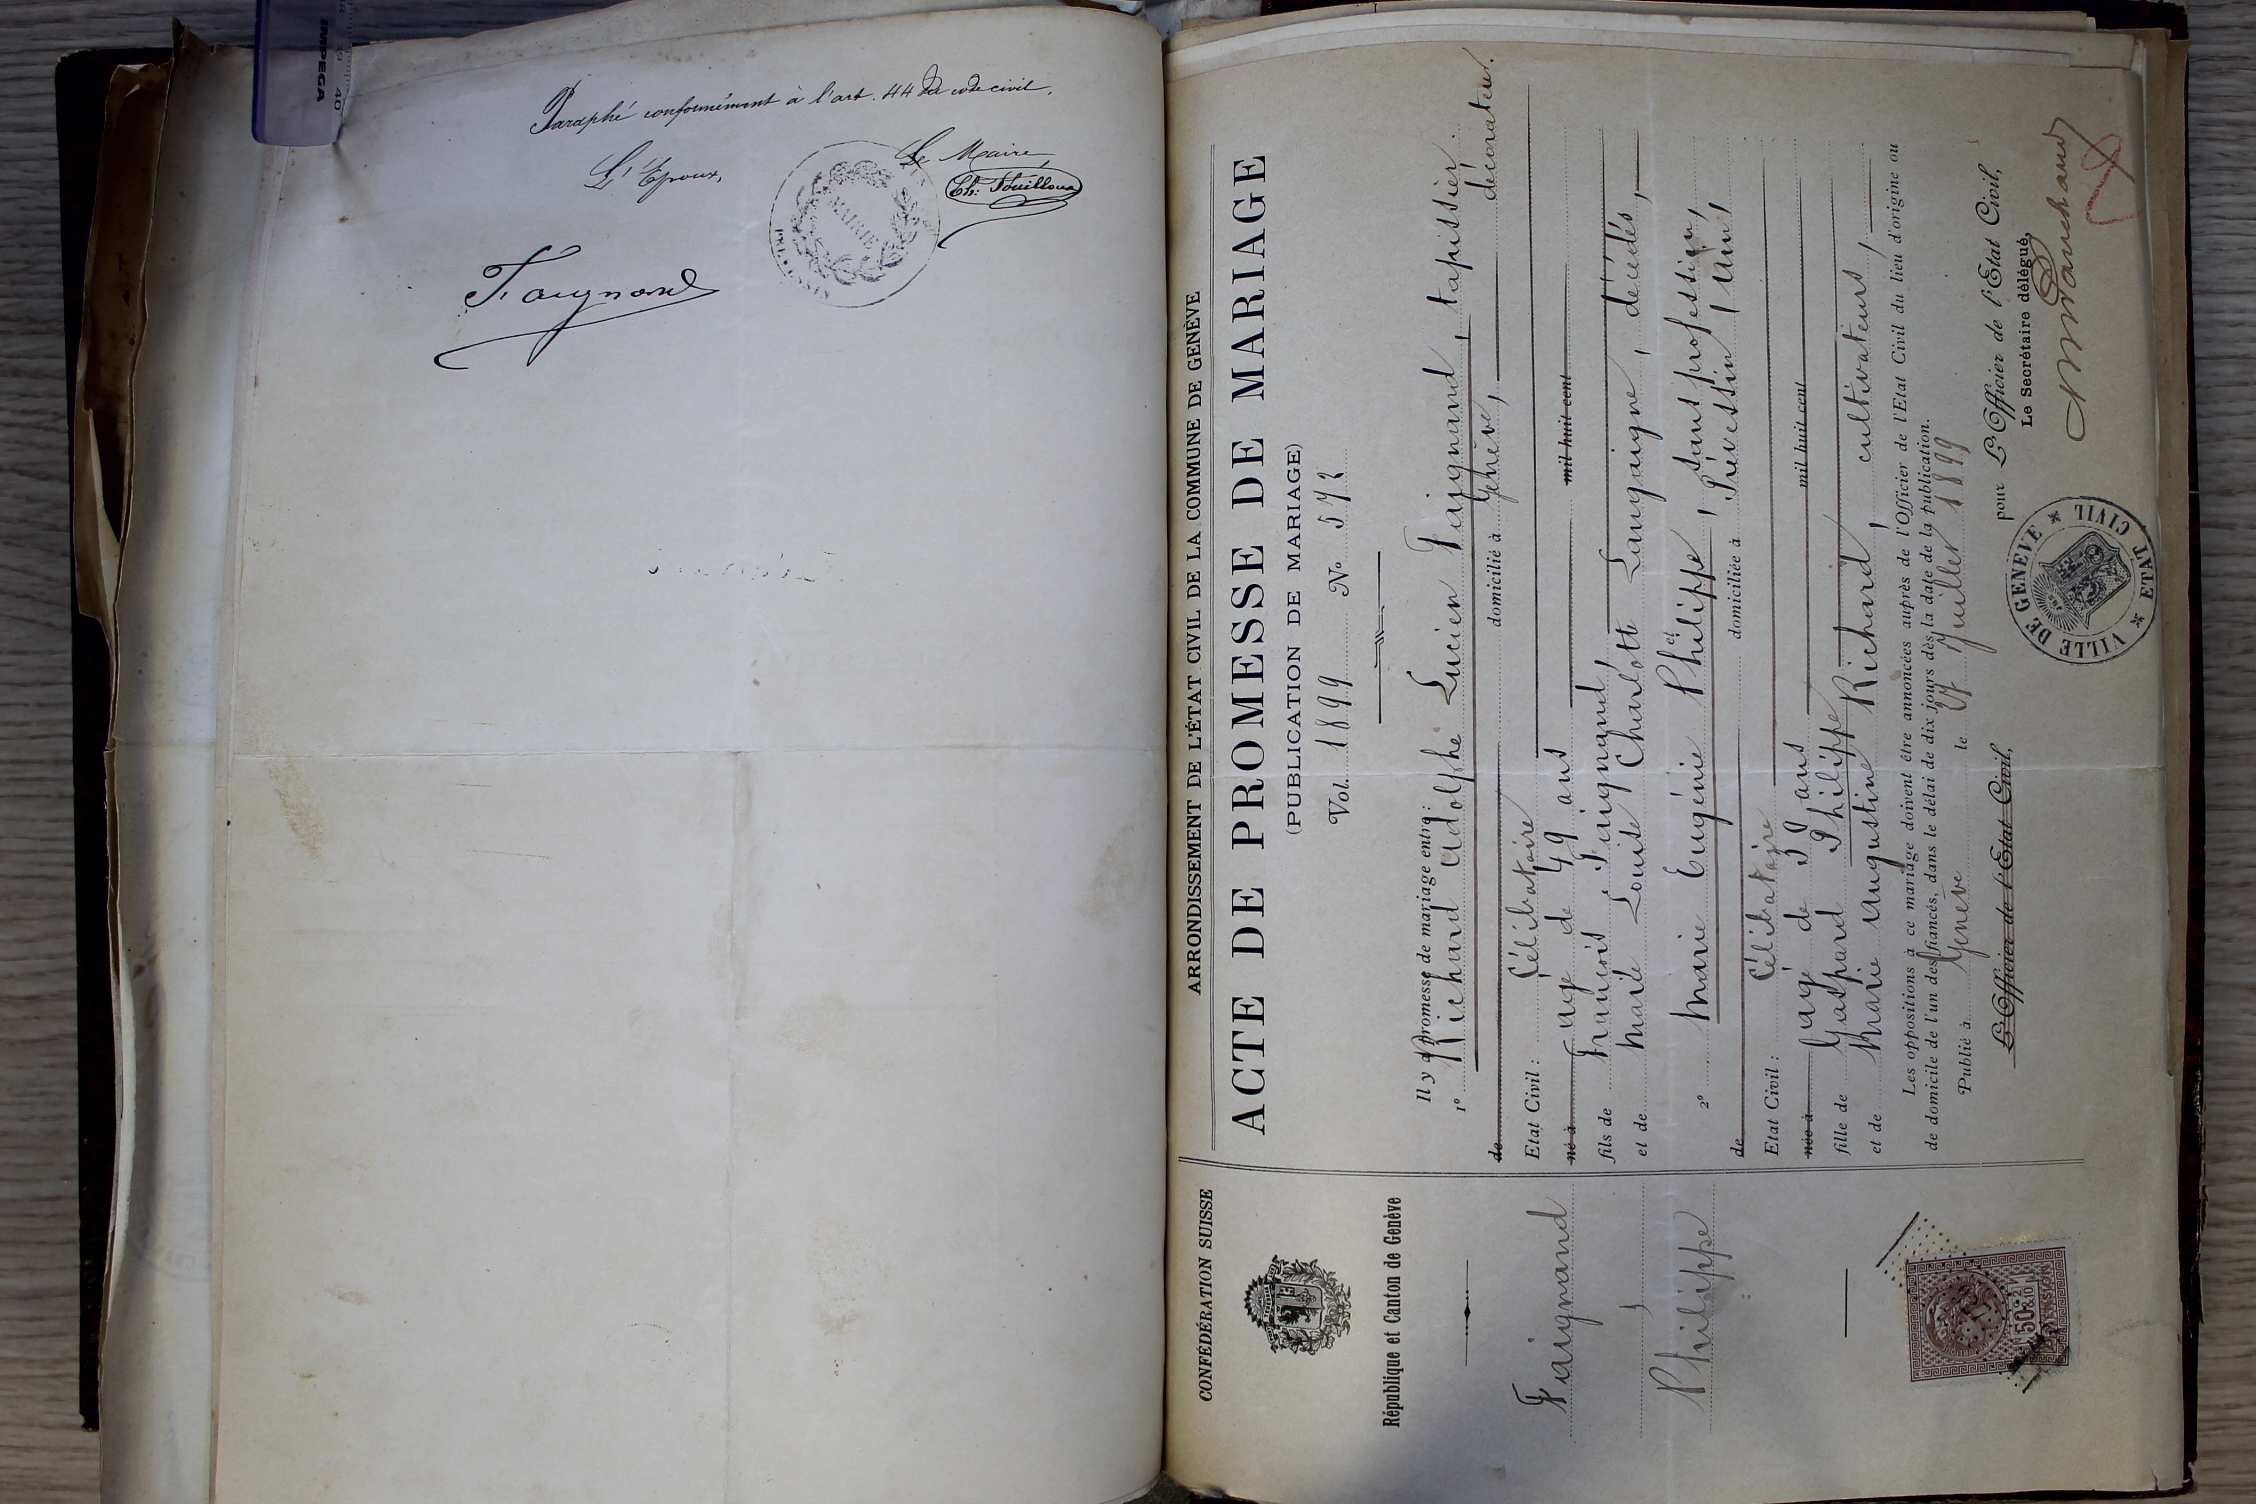 Paraphé conformément à l'art. 44 du code civil.
L'Epoux,
Le Maire
MAIRIE
Faignand
CONFÉDÉRATION SUISSE
République et Canton de Genève
Faignand
Philippe
ARRONDISSEMENT DE L'ÉTAT CIVIL DE LA COMMUNE DE GENÈVE
ACTE DE PROMESSE DE MARIAGE
(PUBLICATION DE MARIAGE)
Vol. 1899 No 573
Il y a promesse de mariage entre:
1o Richard Adolphe Lucien Faignand, tapissier
décorateur.
de domicilié à Genève,
Etat Civil: Célibataire
né à âgé de 49 ans mil huit cent
fils de François Faignand,
et de Marie Louise Charlotte Langaigne, décédés,
et
2o Marie Eugénie Philippe, sans profession,
de domiciliée à Prévessin, (Ain)
Etat Civil: Célibataire
née à âgé de ans mil huit cent
fille de Gaspard Philippe
et de Marie Augustine Richard, cultivateurs,
Les oppositions à ce mariage doivent être annoncées auprès de l'Officier de l'Etat Civil du lieu d'origine ou
de domicile de l'un des fiancés, dans le délai de dix jours dès la date de la publication.
Publié à Genève le 27 Juillet 1899
L'Officier de l'Etat Civil,
pour L'Officier de l'Etat Civil,
Le Secrétaire délégué,
VILLE DE GENÈVE
ETAT CIVIL
50
IMPEGA
40